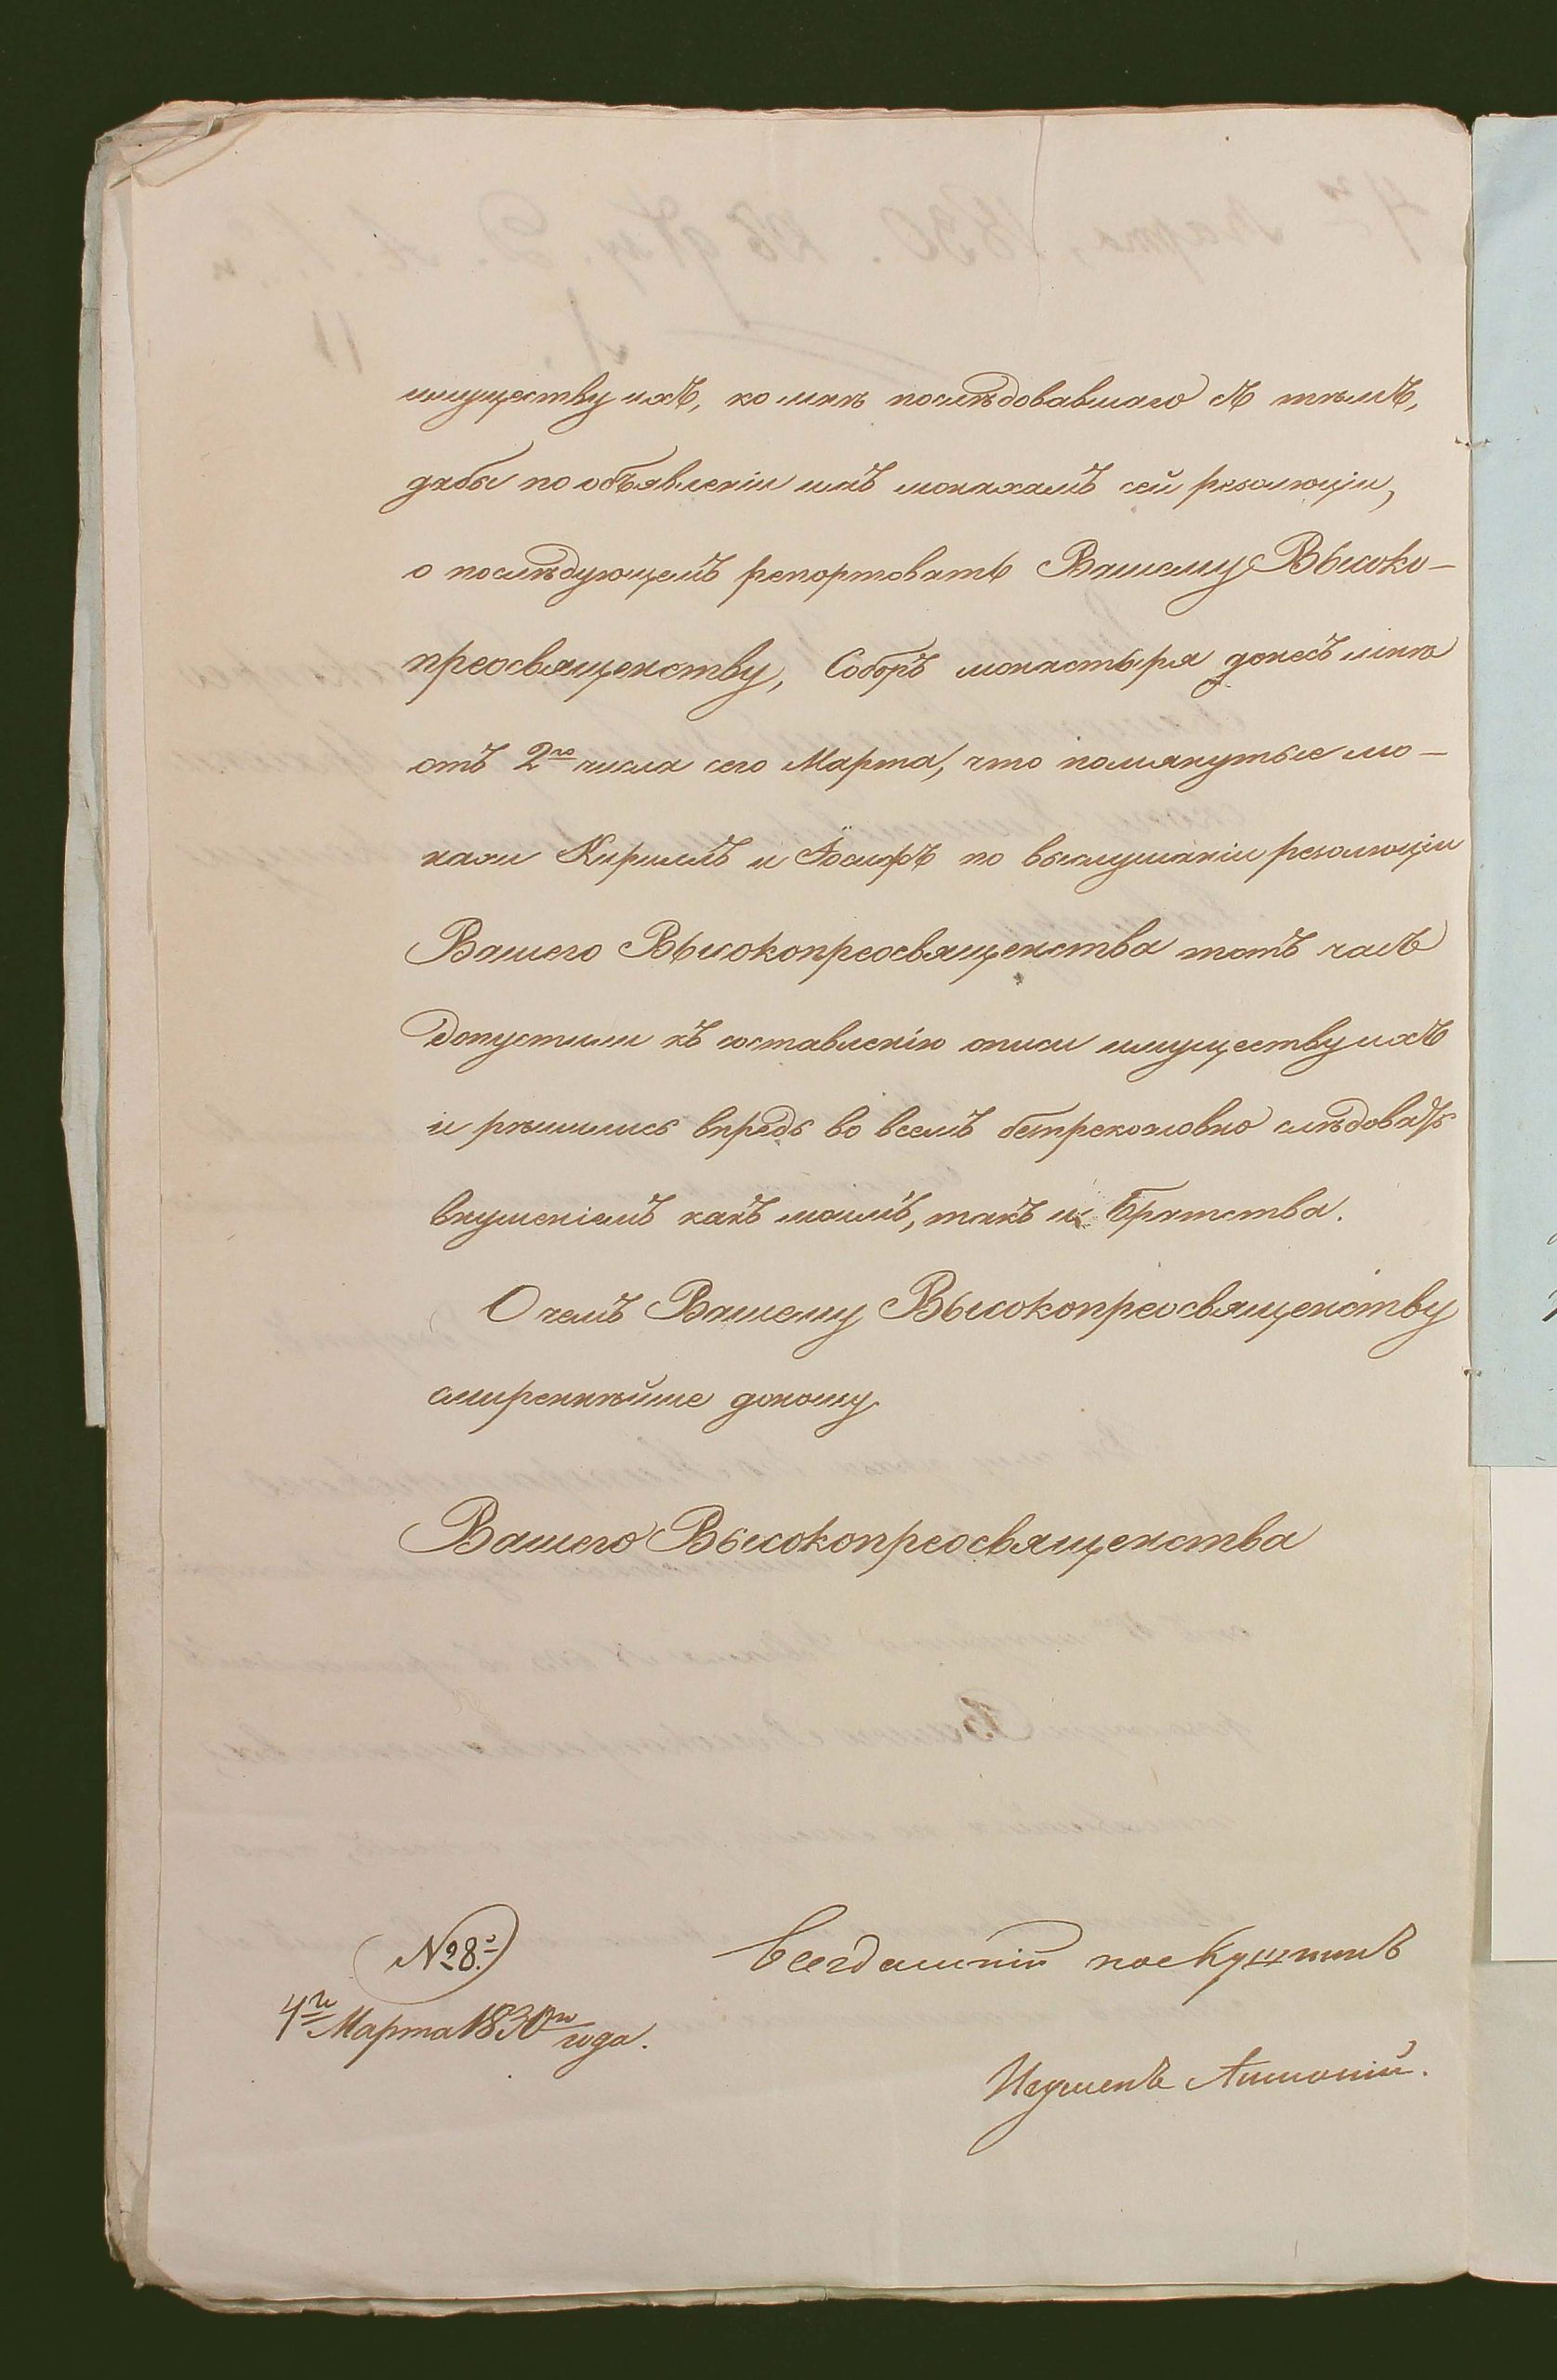 имуществу ихъ, ко мнѣ послѣдовавшаго съ тѣмъ,
дабы по объявленіи имъ монахамъ сей резолюціи,
о послѣдующемъ репортовать Вашему Высоко-
преосвященству, Соборъ монастыря донесъ мнѣ
отъ 2го числа сего Марта, что помянутые мо-
нахи Кириллъ и Іосифъ по выслушаніи резолюціи
Вашего Высокопреосвященства тотъ часъ
допустили къ составленію описи имуществу ихъ
и рѣшились впредь во всемъ безпрекословно слѣдовать
внушеніямъ какъ моимъ, такъ и братства.
О чемъ Вашему Высокопреосвященству
смиреннѣйше доношу.
Вашего Высокопреосвященства
всегдашній послушникъ
Игуменъ
№ 8.
4го Марта 1830го года.